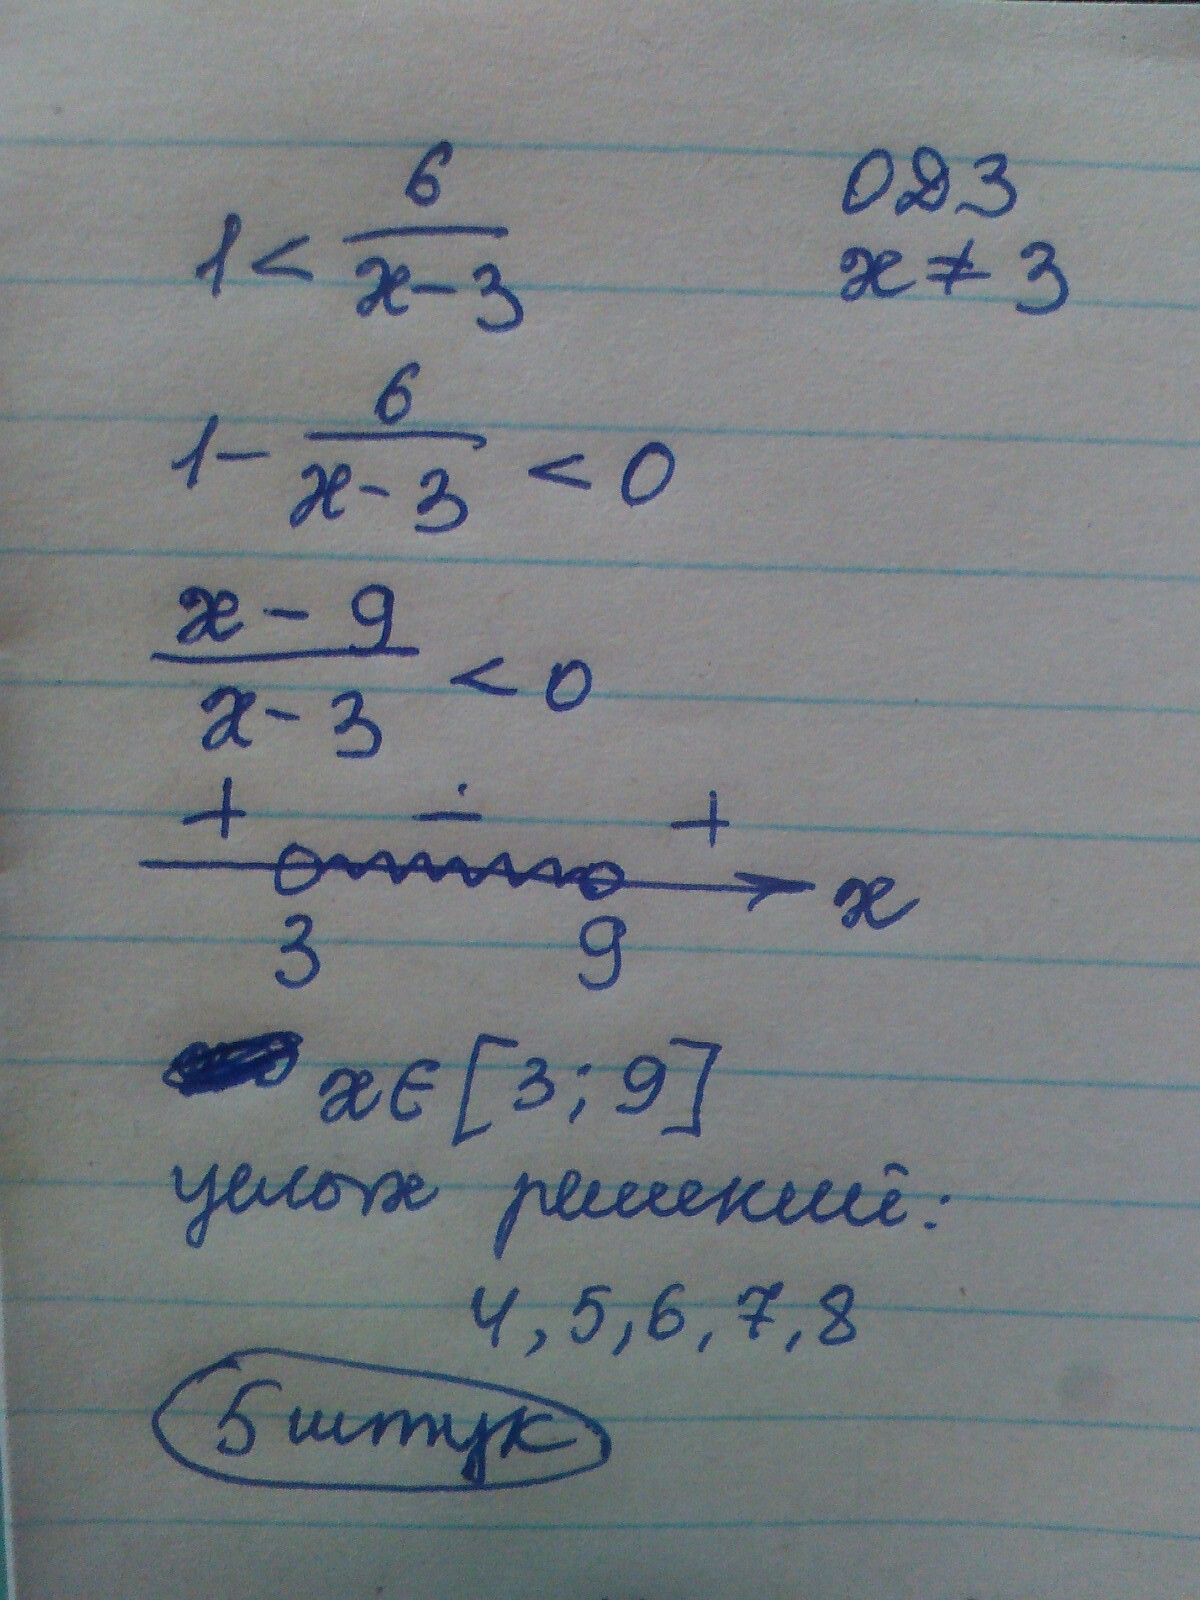 1 < 6/(x-3) ОДЗ
x ≠ 3
1 - 6/(x-3) < 0
(x-9)/(x-3) < 0
+ - +
3 9 x
x∈[3;9]
целых решений:
4,5,6,7,8
5 штук